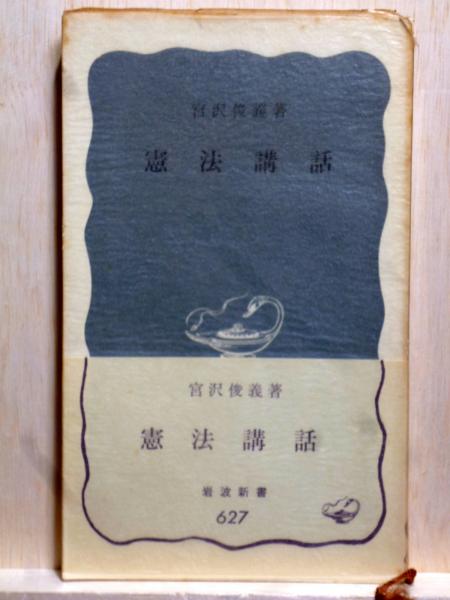 宮沢俊義著
憲法講話
宮沢俊義著
憲法講話
岩波新書
627